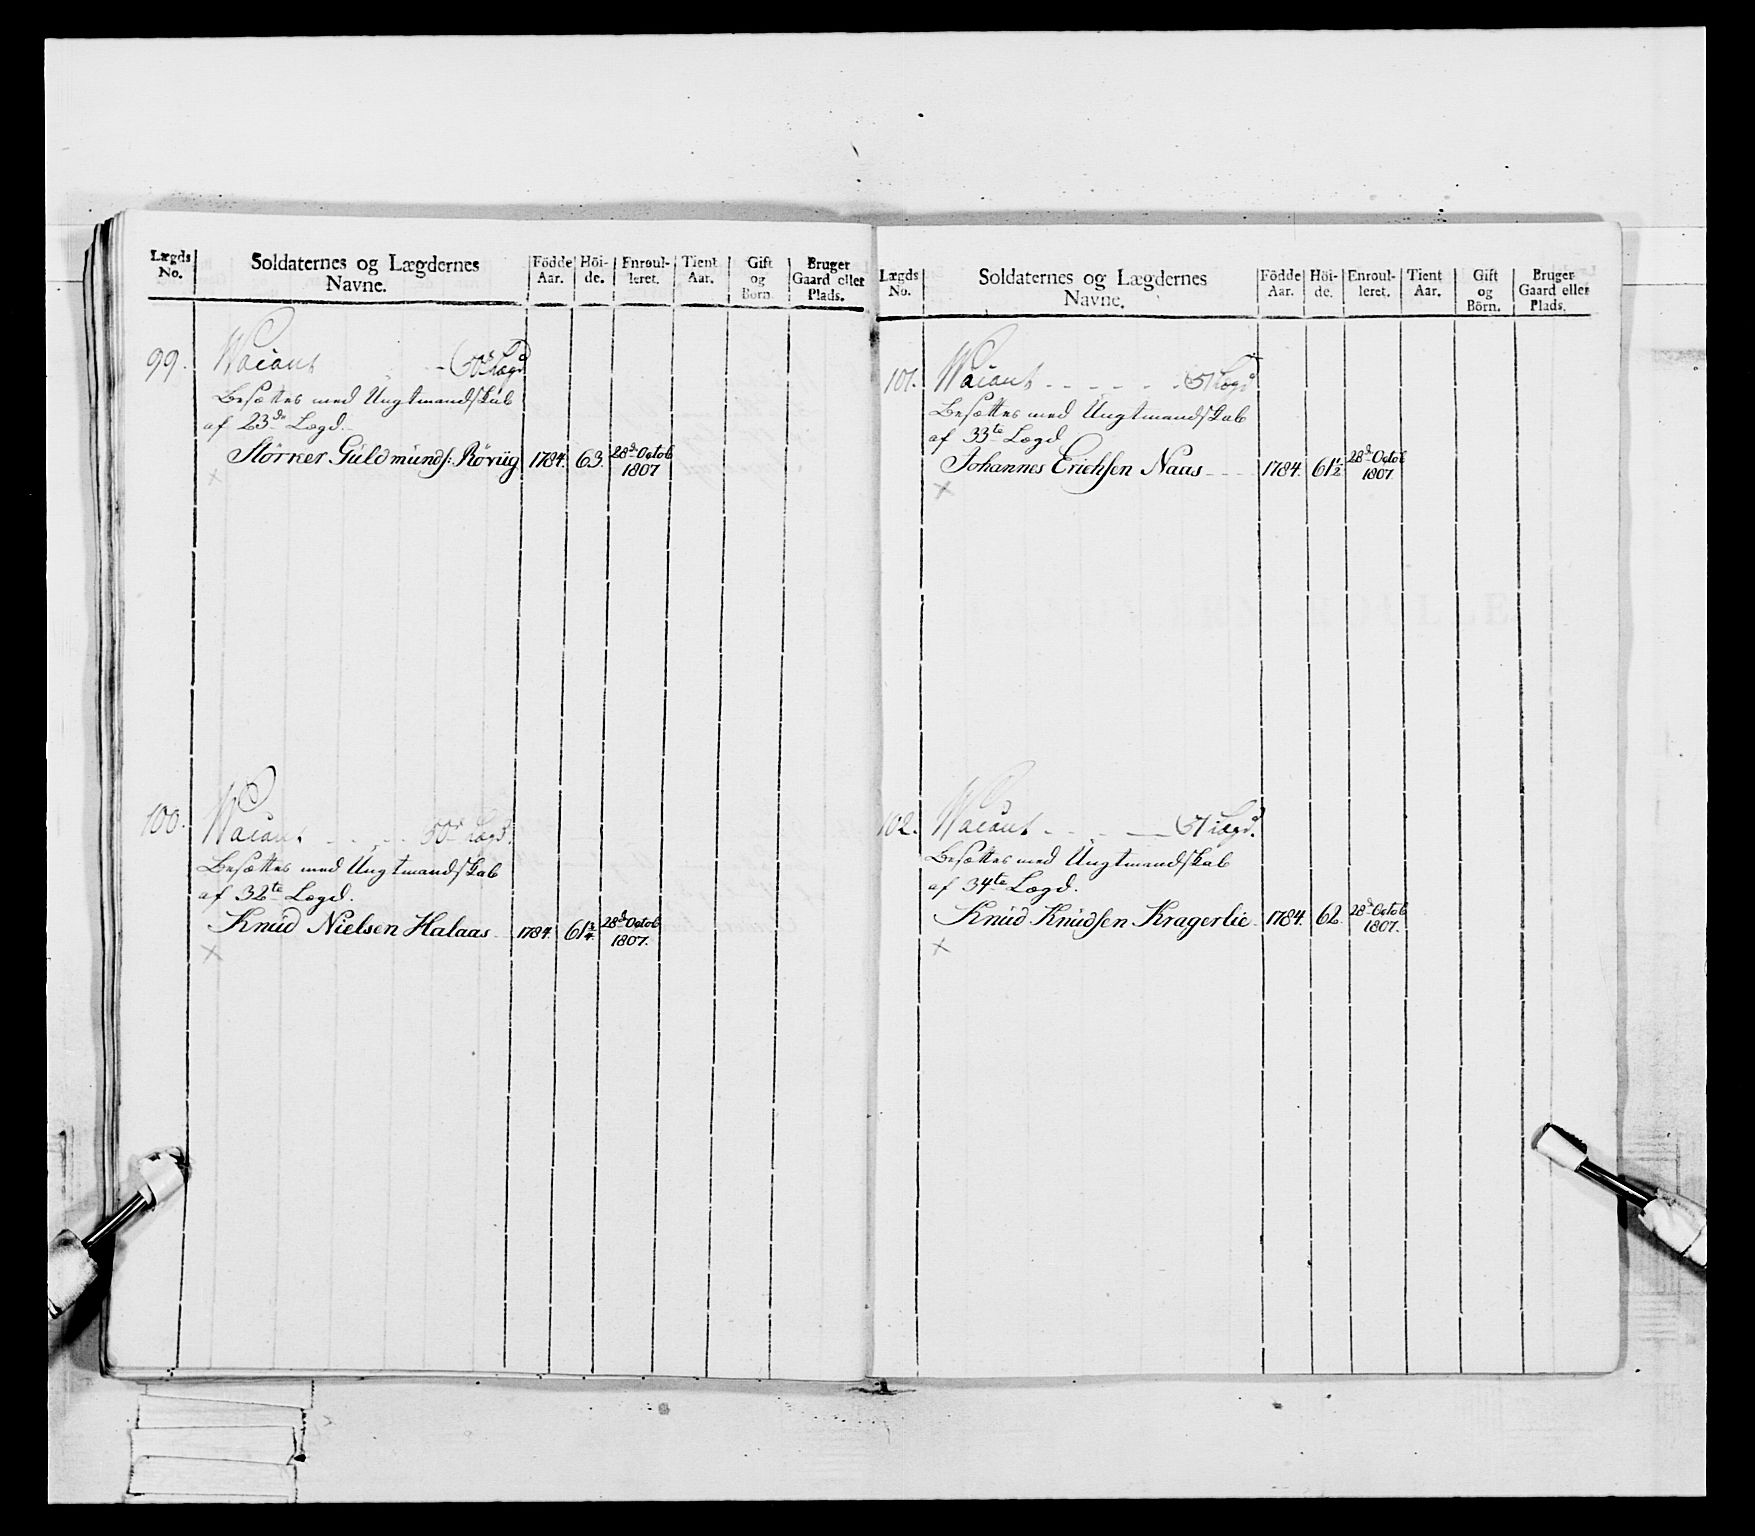 Lægds No.
Soldaternes og Lægdernes Navne.
Födde Aar.
Höi-de.
Enroul-leret.
Tient Aar.
Gift og Börn.
Bruger Gaard eller Plads.
99. Vacant - 50de Lægd
Besættes med Ungtmandskab
af 23de Lægd.
Störker Guldmunds: Rövüg 1784. 63. 28de Octob 1807
×
100. Vacant - - - - 50de Lægd.
Besættes med Ungtmandskab
af 32te Lægd.
Knud Nielsen Halaas 1784. 61 3/4. 28de Octob 1807.
×
Lægds No.
Soldaternes og Lægdernes Navne.
Födde Aar.
Höi-de.
Enroul-leret.
Tient Aar.
Gift og Börn.
Bruger Gaard eller Plads.
101. Vacant - - - - - - 51 Lægd
Besættes med Ungtmandskab
af 33te Lægd
Johannes Erichsen Naas 1784. 61 1/2 28de Octob 1807.
×
102. Vacant - - - - 51 Lægd.
Besættes med Ungtmandskab
af 34te Lægd.
Knud Knudsen Kragerlie 1784. 62. 28de Octob 1807.
×